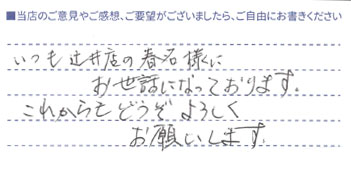 ■当店のご意見やご感想、ご要望がございましたら、ご自由にお書きください
いつも辻井店の春名様に
お世話になっております。
これからもどうぞよろしく
お願いします。